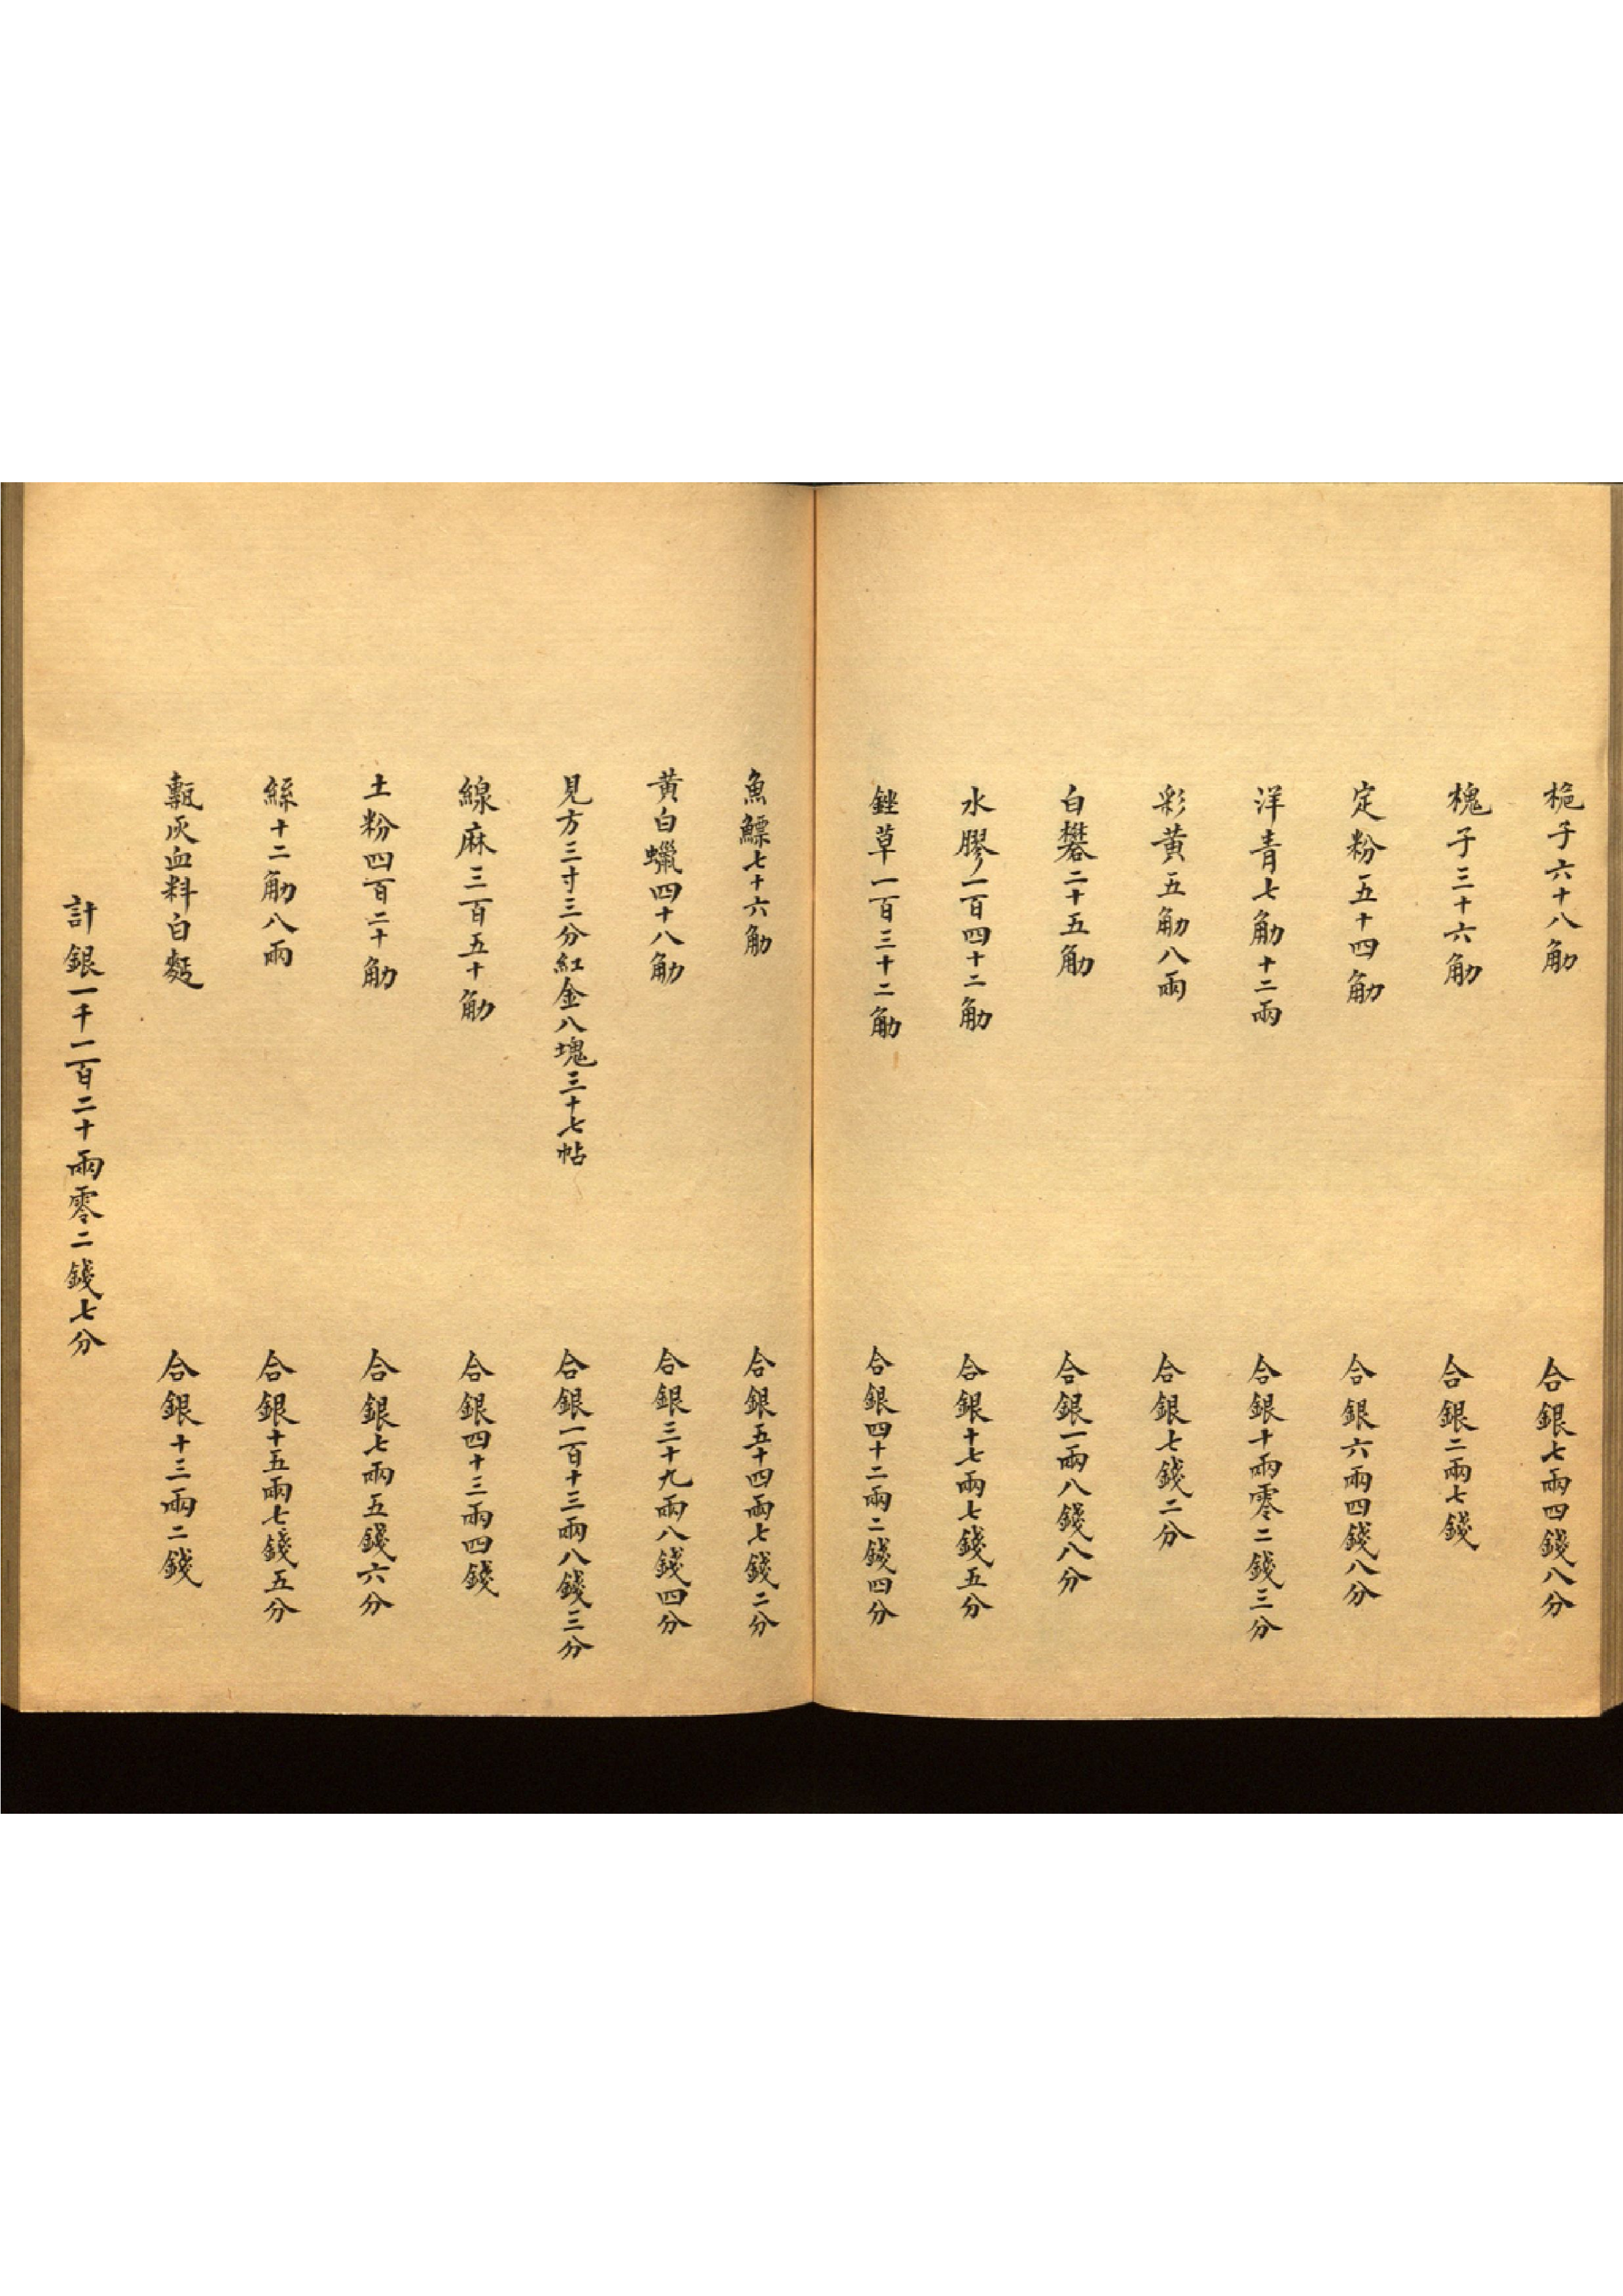 梔子六十八觔 合銀七兩四錢八分
槐子三十六觔 合銀二兩七錢
定粉五十四觔 合銀六兩四錢八分
洋青七觔十二兩 合銀十兩零二錢三分
彩黄五觔八兩 合銀七錢二分
白礬二十五觔 合銀一兩八錢八分
水膠一百四十二觔 合銀十七兩七錢五分
銼草一百三十二觔 合銀四十二兩二錢四分
魚鰾七十六觔 合銀五十四兩七錢二分
黄白蠟四十八觔 合銀三十九兩八錢四分
見方三寸三分紅金八塊三十七帖 合銀一百十三兩八錢三分
線麻三百五十觔 合銀四十三兩四錢
土粉四百二十觔 合銀七兩五錢六分
絲十二觔八兩 合銀十五兩七錢五分
甎灰血料白麪 合銀十三兩二錢
計銀一千一百二十兩零二錢七分